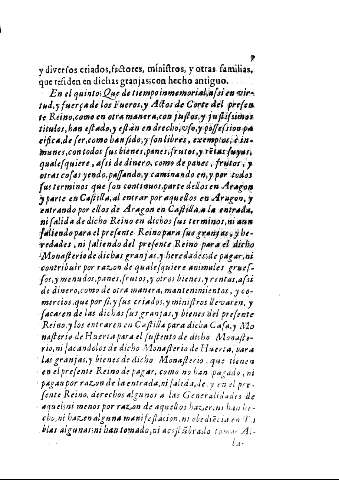 y diversos criados, factores, ministros, y otras familias,
que residen en dichas granjas: con hecho antiguo.
En el quinto: Que de tiempo inmemorial, assi en vir-
tud, y fuerça de los Fueros, y Actos de Corte del presen
te Reino, como en otra manera, con justos, y justissimos
titulos, han estado, y están en drecho, vso, y possession pa
cifica, de ser, como han sido, y son libres, exemptos, è in-
munes, con todos sus bienes, panes, frutos, y rētas suyas,
qualesquiere, assi de dinero, como de panes, frutos, y
otras cosas yendo, passando, y caminando en, y por todos
sus terminos que son continuos, parte dellos en Aragon
y parte en Castilla, al entrar por aquellos en Aragon, y
entrando por ellos de Aragon en Castilla, a la entrada,
ni salida de dicho Reino en dichos sus terminos, ni aun
saliendo para el presente Reino para sus granjas, y he-
redades, ni saliendo del presente Reino para el dicho
Monasterio de dichas granjas, y heredades, de pagar, ni
contribuir por razon de qualesquiere animales gruess-
sos, y menudos, panes, frutos, y otros bienes, y rentas, assi
de dinero, como de otra manera, mantenimientos, y co-
mercios, que por si, y sus criados, y ministros llevaren, y
sacaren de las dichas sus granjas, y bienes del presente
Reino, y los entraren en Castilla para dicha Casa, y Mo
nasterio de Huerta para el sustento de dicho Monaste-
rio, ni sacandolos de dicho Monasterio de Huerta, para
las granjas, y bienes de dicho Monasterio que tienen
en el presente Reino de pagar, como no han pagado, ni
pagan por razon de la entrada, ni salida, de, y en el pre-
sente Reino, derechos algunos a las Generalidades de
aquel: ni menos por razon de aquellos hazer, ni han he-
cho, ni hazen alguna manifestacion, ni obediēcia en Ta
blas algunas: ni han tomado, ni acostūbrado tomar A-
la-